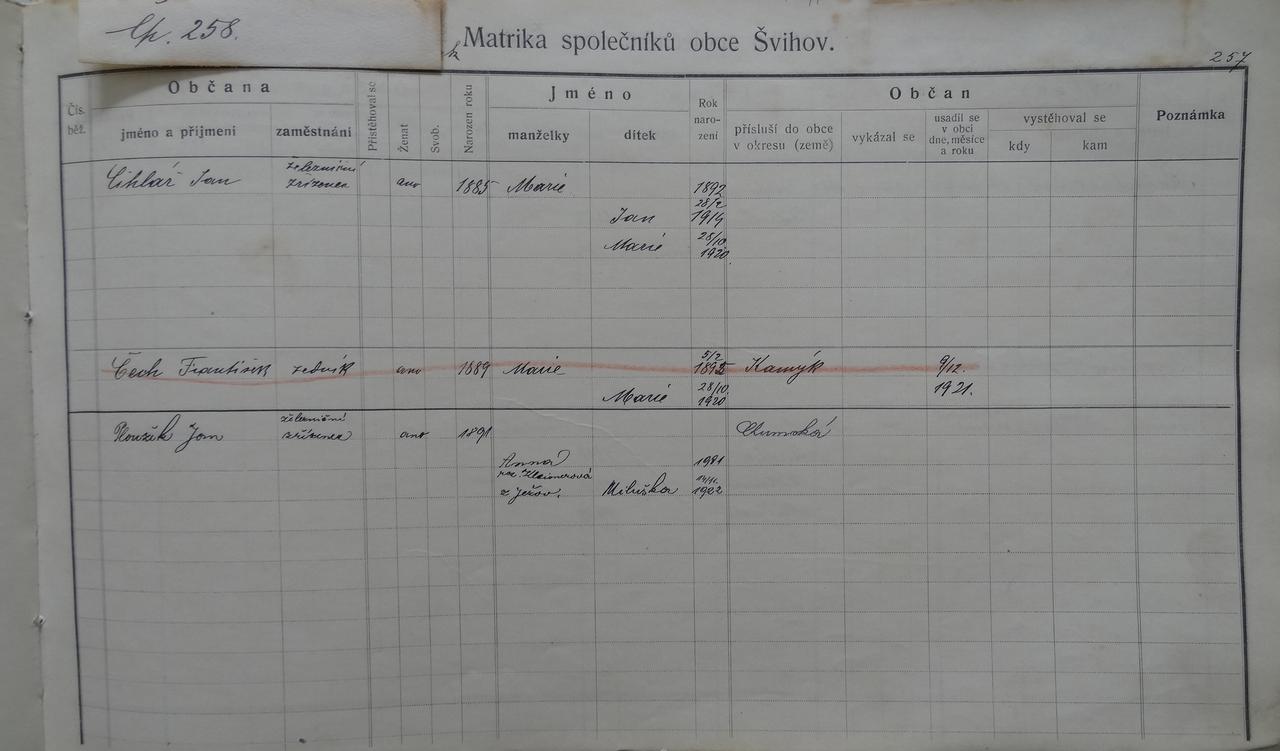 Čp. 258.
k Matrika společníků obce Švihov.
257
Čís. běž.
Občana
jméno a přijmení
zaměstnání
Přistěhoval se
Ženat
Svob.
Narozen roku
Jméno
manželky
dítek
Rok naro- zení
Občan
přísluší do obce v okresu (země)
vykázal se
usadil se v obci dne, měsíce a roku
vystěhoval se
kdy
kam
Poznámka
železniční
Cihlář Jan zřízenec ano 1885 Marie 1892
28/2
Jan 1914
28/10
Marie 1920.
5/2
Čech František zedník ano 1889 Marie 1895 Kamýk 9/12.
28/10. 1921.
Marie 1920
železniční
Jan zřízenec ano 1891
Anna 1981
roz. 14/11.
z Ježov. Miluška 1922